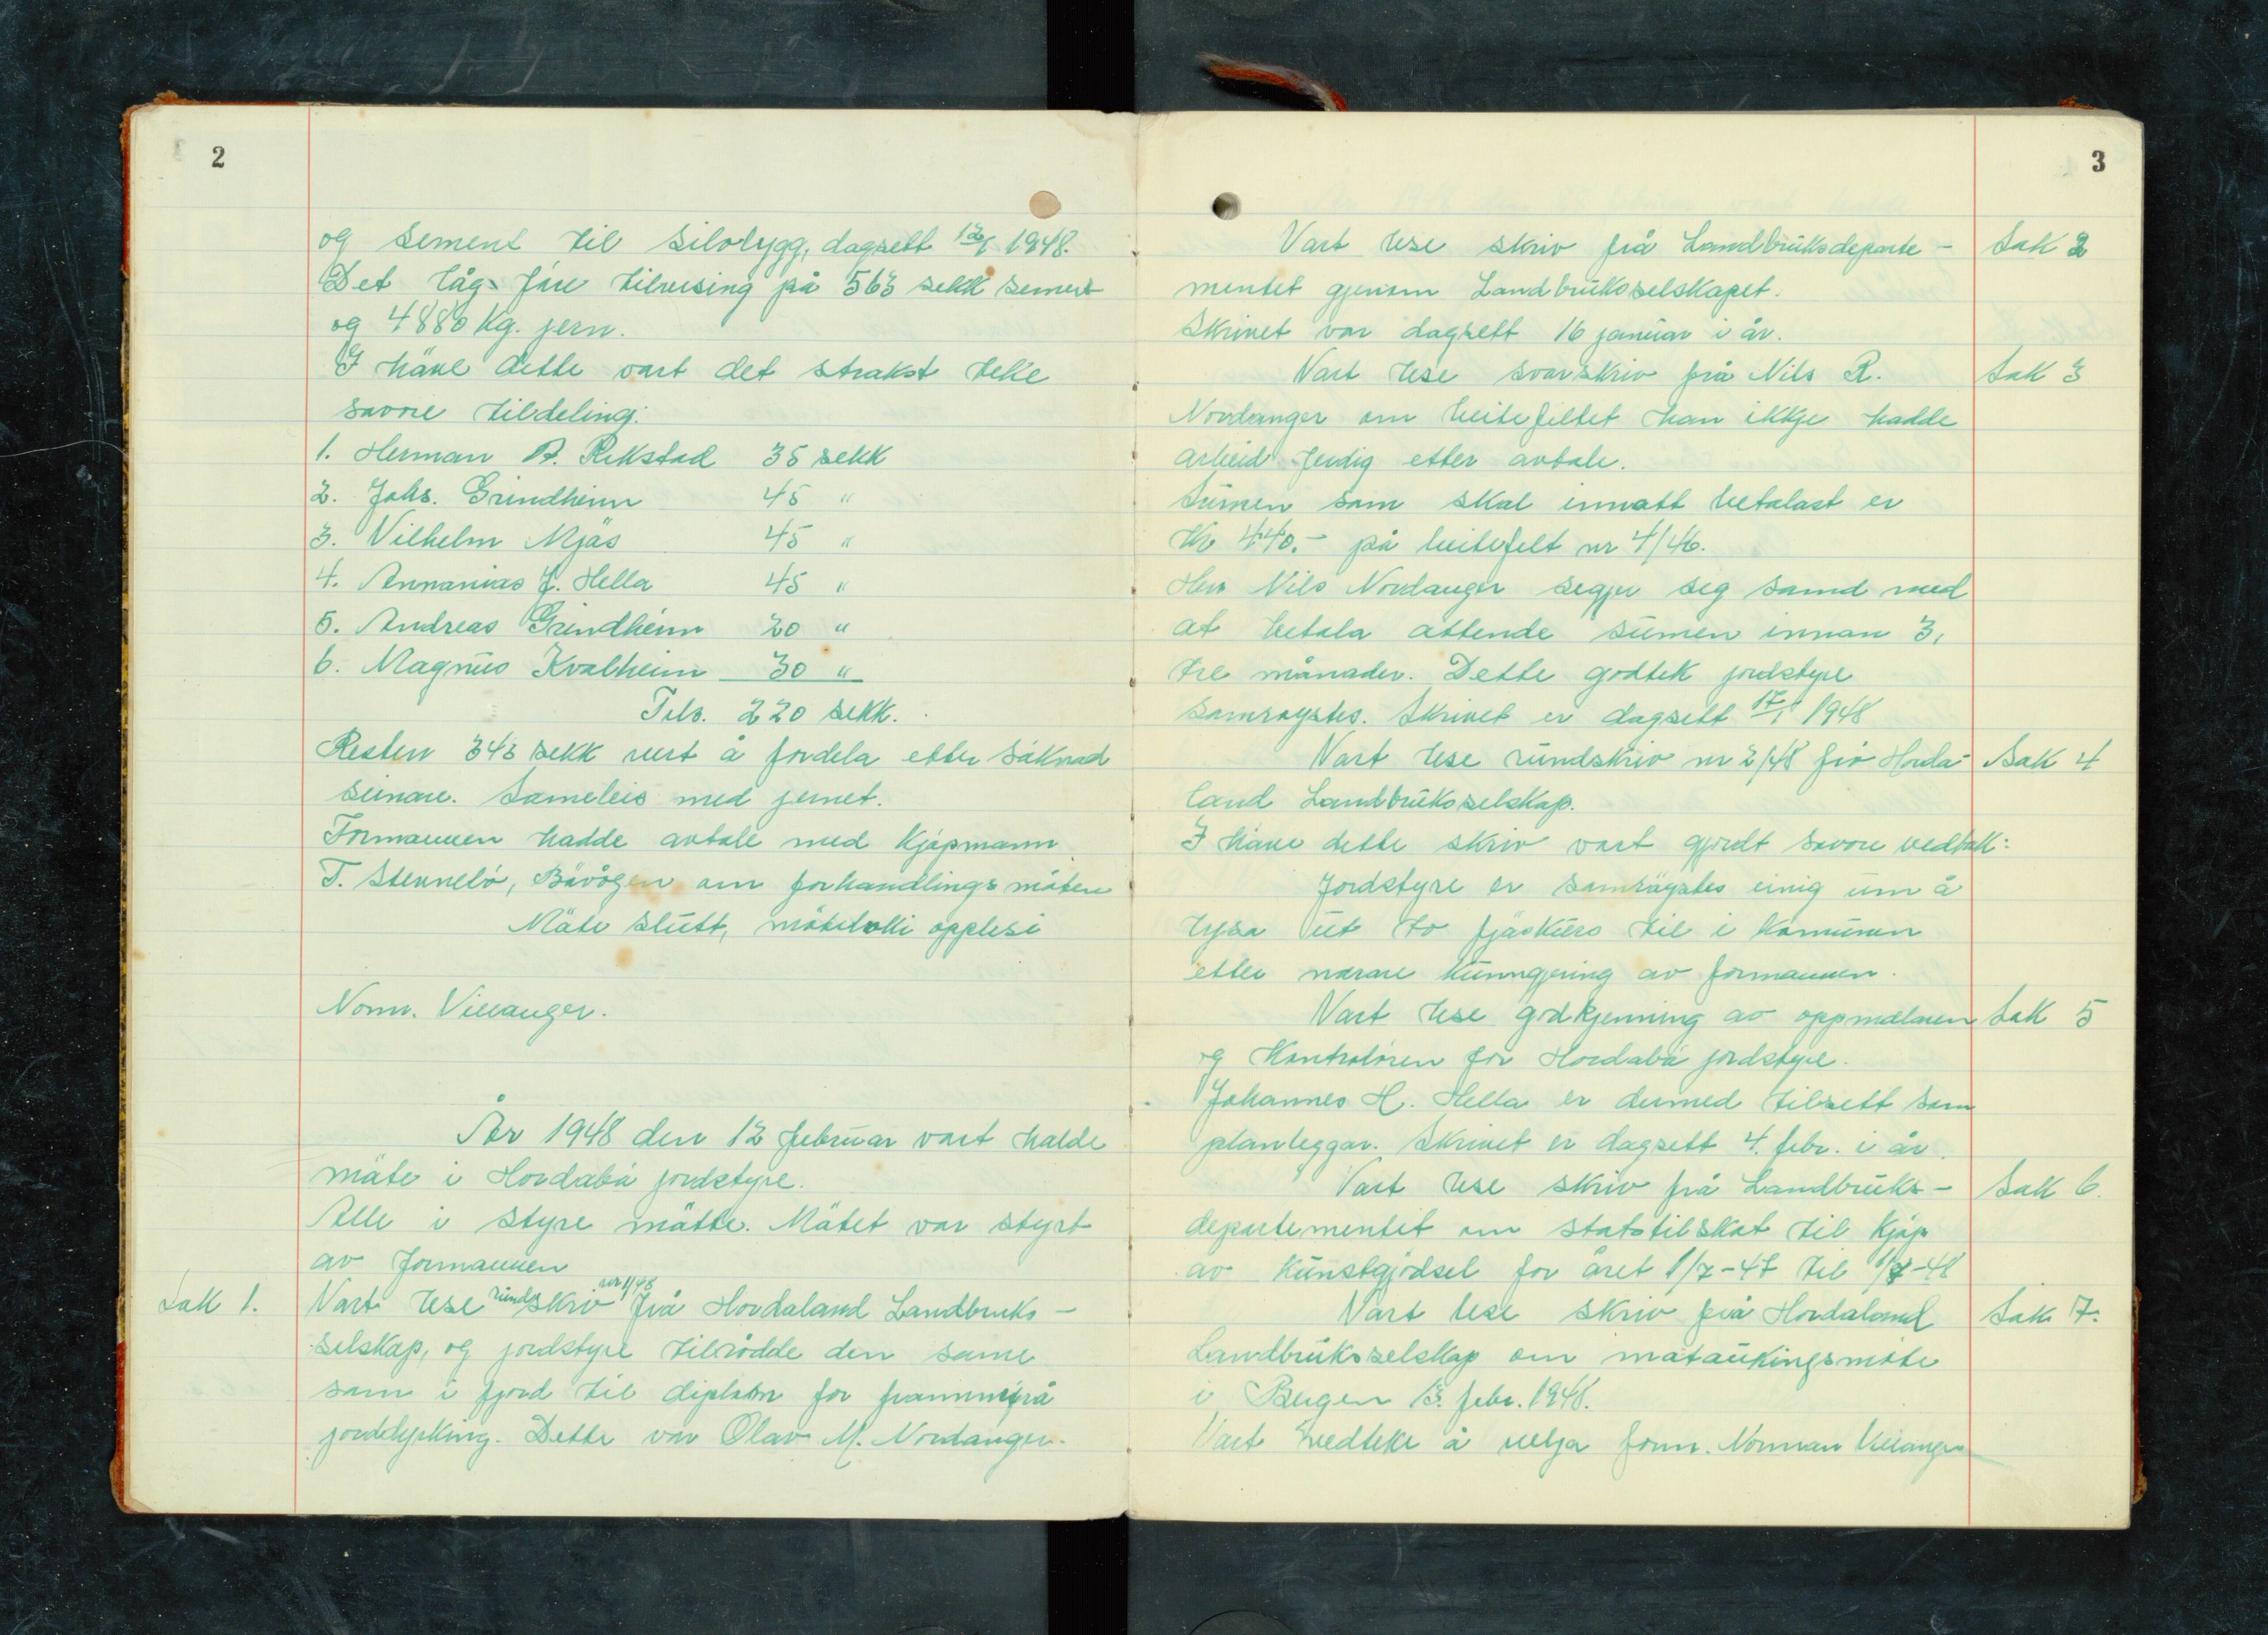 2
og sement til silobygg, dagsett 12/1 1948.
Det låg fåre tilvising på 563 sekk sement
og 4880 Kg. jern.
I håve dette vart det strakst teke
såvore tildeling:
1. Herman A. Rikstad 35 sekk
2. Johs. Grindheim 45 "
3. Vilhelm Mjøs 45 "
4. Annanias J. Hella 45 "
5. Andreas Grindheim 20 "
6. Magnus Kvalheim 30 "
Tils. 220 sekk.
Resten 343 sekk vert å fordela etter såknad
seinare. Sameleis med jernet.
Formannen hadde avtale med kjøpmann
T. Stennelø, Bøvågen om forhandlings måten
Møte slutt, møteboki opplesi
Norm. Villanger.
År 1948 den 12 februar vart halde
møte i Hordabø jordstyre.
Alle i styre møtte. Møtet var styrt
av formannen
Sak 1.
Vart lese rundskriv nr 1/48 frå Hordaland Landbruks-
selskap, og jordstyre tilrådde den same
som i fjord til diplom for framifrå
jorddyrking. Dette var Olav M. Nordanger.
3
Vart lese skriv frå Landbruksdeparte-
Sak 2
mentet gjenom Landbruksselskapet.
Skrivet var dagsett 16 januar i år.
Vart lese svarskriv frå Nils R.
Sak 3
Nordanger om beitefeltet han ikkje hadde
arbeid ferdig etter avtale.
Sumen som skal innatt betalast er
Kr 440.- på beitefelt nr 4/46.
Herr Nils Nordanger segjer seg samd med
at betala attende sumen innan 3,
tre månader. Dette godtek jordstyre
samrøystes. Skrivet er dagsett 17/1 1948
Vart lese rundskriv nr 2/48 frå Horda-
Sak 4
land Landbruksselskap.
I håve dette skriv vart gjordt såvore vedtak:
Jordstyre er samrøystes einig um å
lysa ut to fjøskurs til i komunen
etter nærare kunngjering av formannen.
Vart lese godkjenning av oppmålaren
Sak 5
og Kontroløren for Hordabø jordstyre.
Johannes H. Hella er dermed tilsett som
planleggar. Skrivet er dagsett 4. febr. i år.
Vart lese skriv frå Landbruks-
Sak 6.
departementet om statstilskot til kjøp
av kunstgjødsel for året 1/7-47 til 1/7-48
Vart lese skriv frå Hordaland
Sak 7.
Landbruksselskap om mataukingsmøte
i Bergen 13. febr. 1948.
Vart vedteke å velja form. Norman Villanger